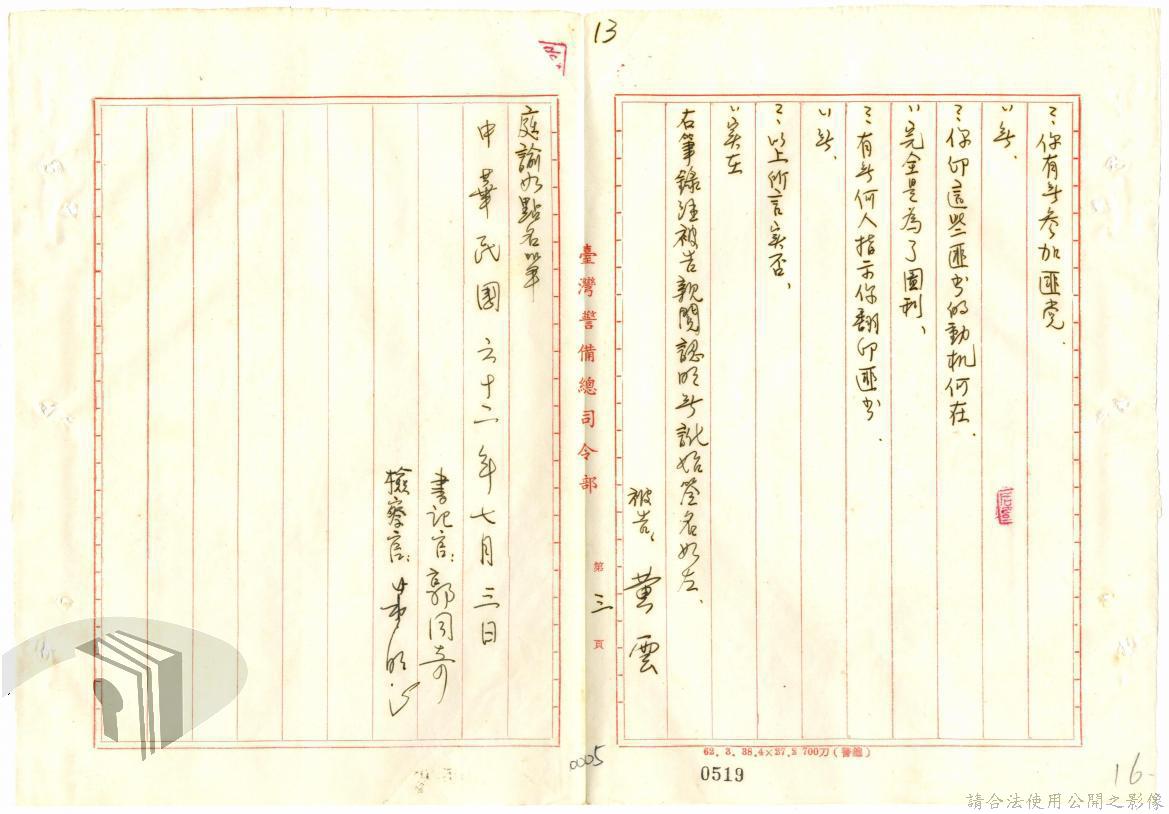 13
ミ、你有无参加匪党.
い无、
ミ、你印這些匪书的動机何在.
い完全是為了圖利、
ミ、有无何人指示你翻印匪书.
い无、
ミ、以上所言实否、
い实在
右筆錄經被告親閱認明无訛始簽名如左、
被告、黄雲
臺灣警備總司令部
第三頁
庭諭如點名單
中華民國六十二年七月三日
書記官：郭同奇
檢察官：
62. 3. 38.4×27.2 700刀(警總)
0005
0519
16
請合法使用公開之影像